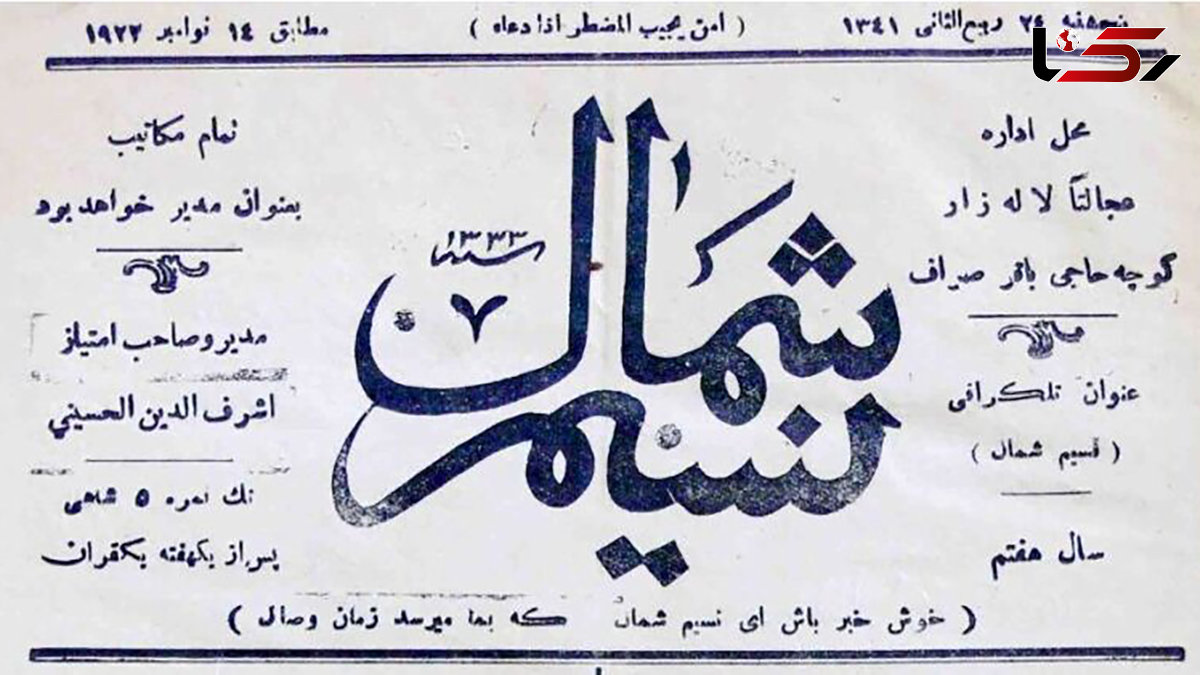 پنجشنبه ۲٤ ربیع الثانی ۱۳٤۱
( امن یجیب المضطر اذا دعاه )
مطابق ۱٤ نوامبر ۱۹۲۲
رکنا
محل اداره
عجالتاً لاله زار
کوچه حاجی باقر صراف
عنوان تلکرافی
( نسیم شمال )
سال هفتم
نسیم شمال
سنه ۱۳۳۳
۷
تمام مکاتیب
بعنوان مدیر خواهد بود
مدیر و صاحب امتیاز
اشرف الدین الحسینی
تک نمره ۵ شاهی
پس از یکهفته یکقران
( خوش خبر باش ای نسیم شمال که بما میرسد زمان وصال )